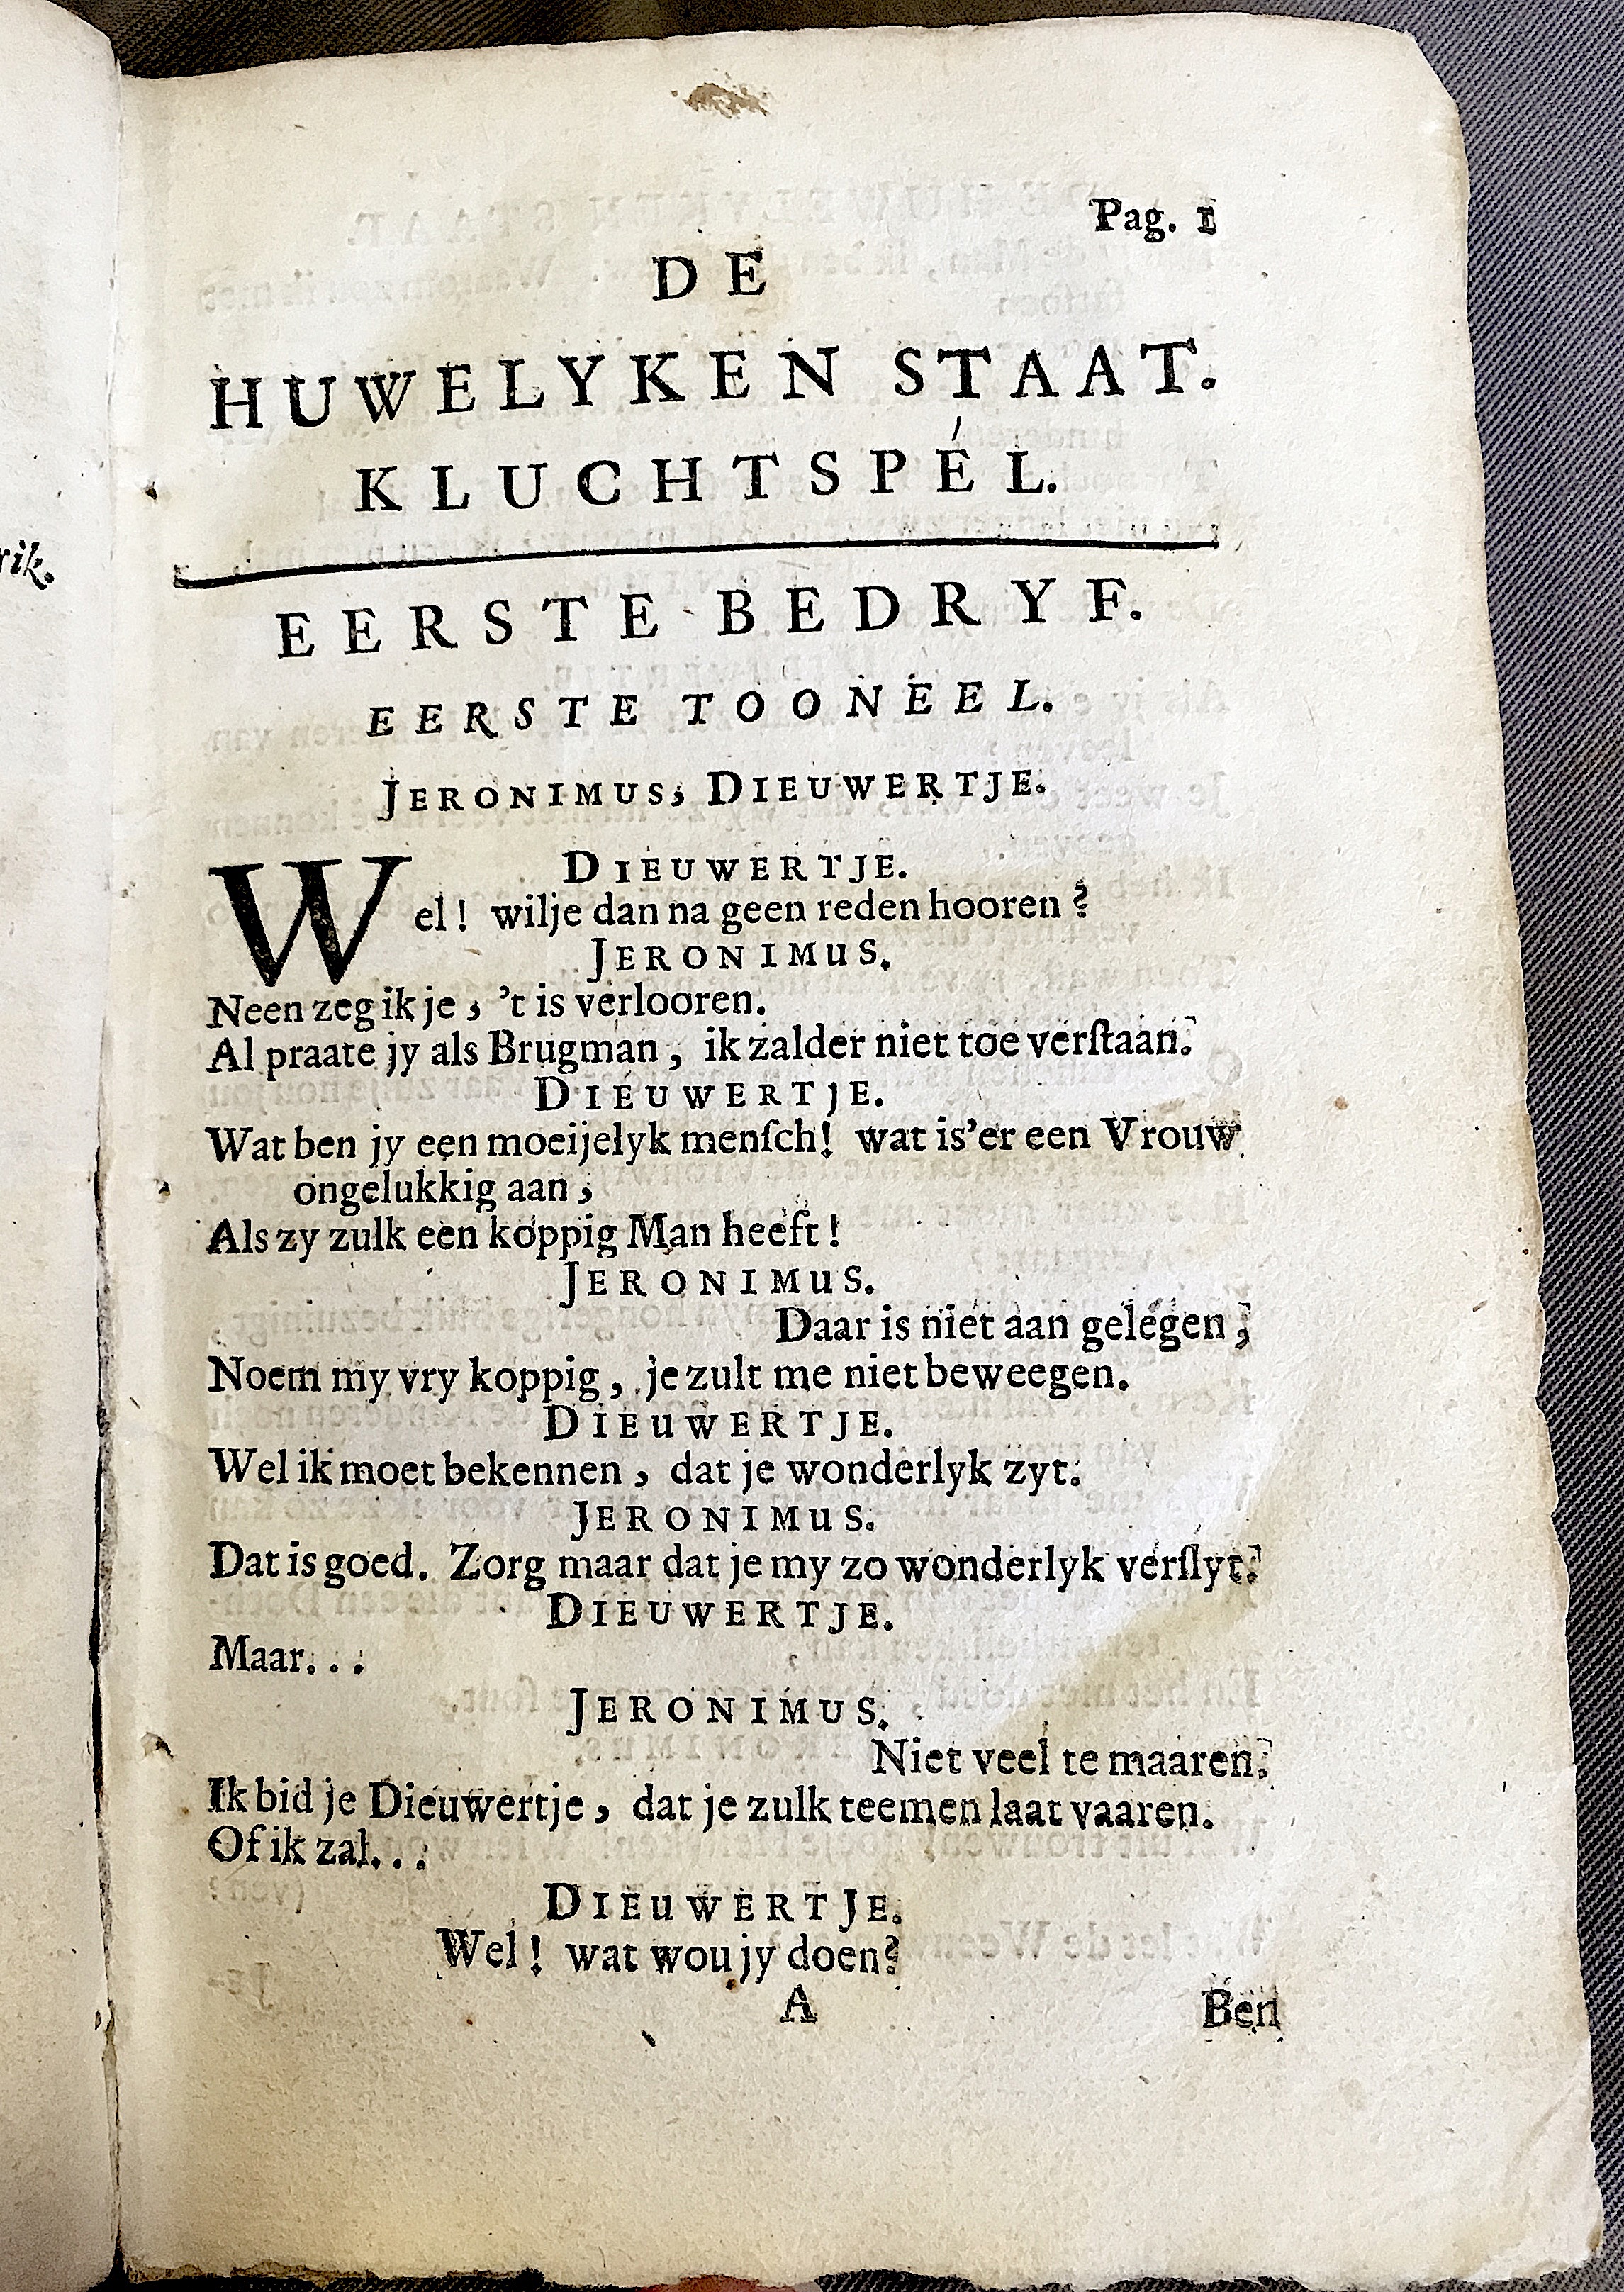 Pag. 1
DE
HUWELYKEN STAAT.
KLUCHTSPÉL.
EERSTE BEDRYF.
EERSTE TOONEEL.
JERONIMUS, DIEUWERTJE.
DIEUWERTJE.
Wel! wilje dan na geen reden hooren?
JERONIMUS.
Neen zeg ik je, 't is verlooren.
Al praate jy als Brugman, ik zalder niet toe verſtaan.
DIEUWERTJE.
Wat ben jy een moeijelyk menſch! wat is'er een Vrouw
ongelukkig aan,
Als zy zulk een koppig Man heeft!
JERONIMUS.
Daar is niet aan gelégen,
Noem my vry koppig, je zult me niet beweegen.
DIEUWERTJE.
Wel ik moet bekennen, dat je wonderlyk zyt.
JERONIMUS.
Dat is goed. Zorg maar dat je my zo wonderlyk verſlyt.
DIEUWERTJE.
Maar...
JERONIMUS.
Niet veel te maaren.
Ik bid je Dieuwertje, dat je zulk teemen laat vaaren.
Of ik zal...
DIEUWERTJE.
Wel! wat wou jy doen?
A Ben
rik.